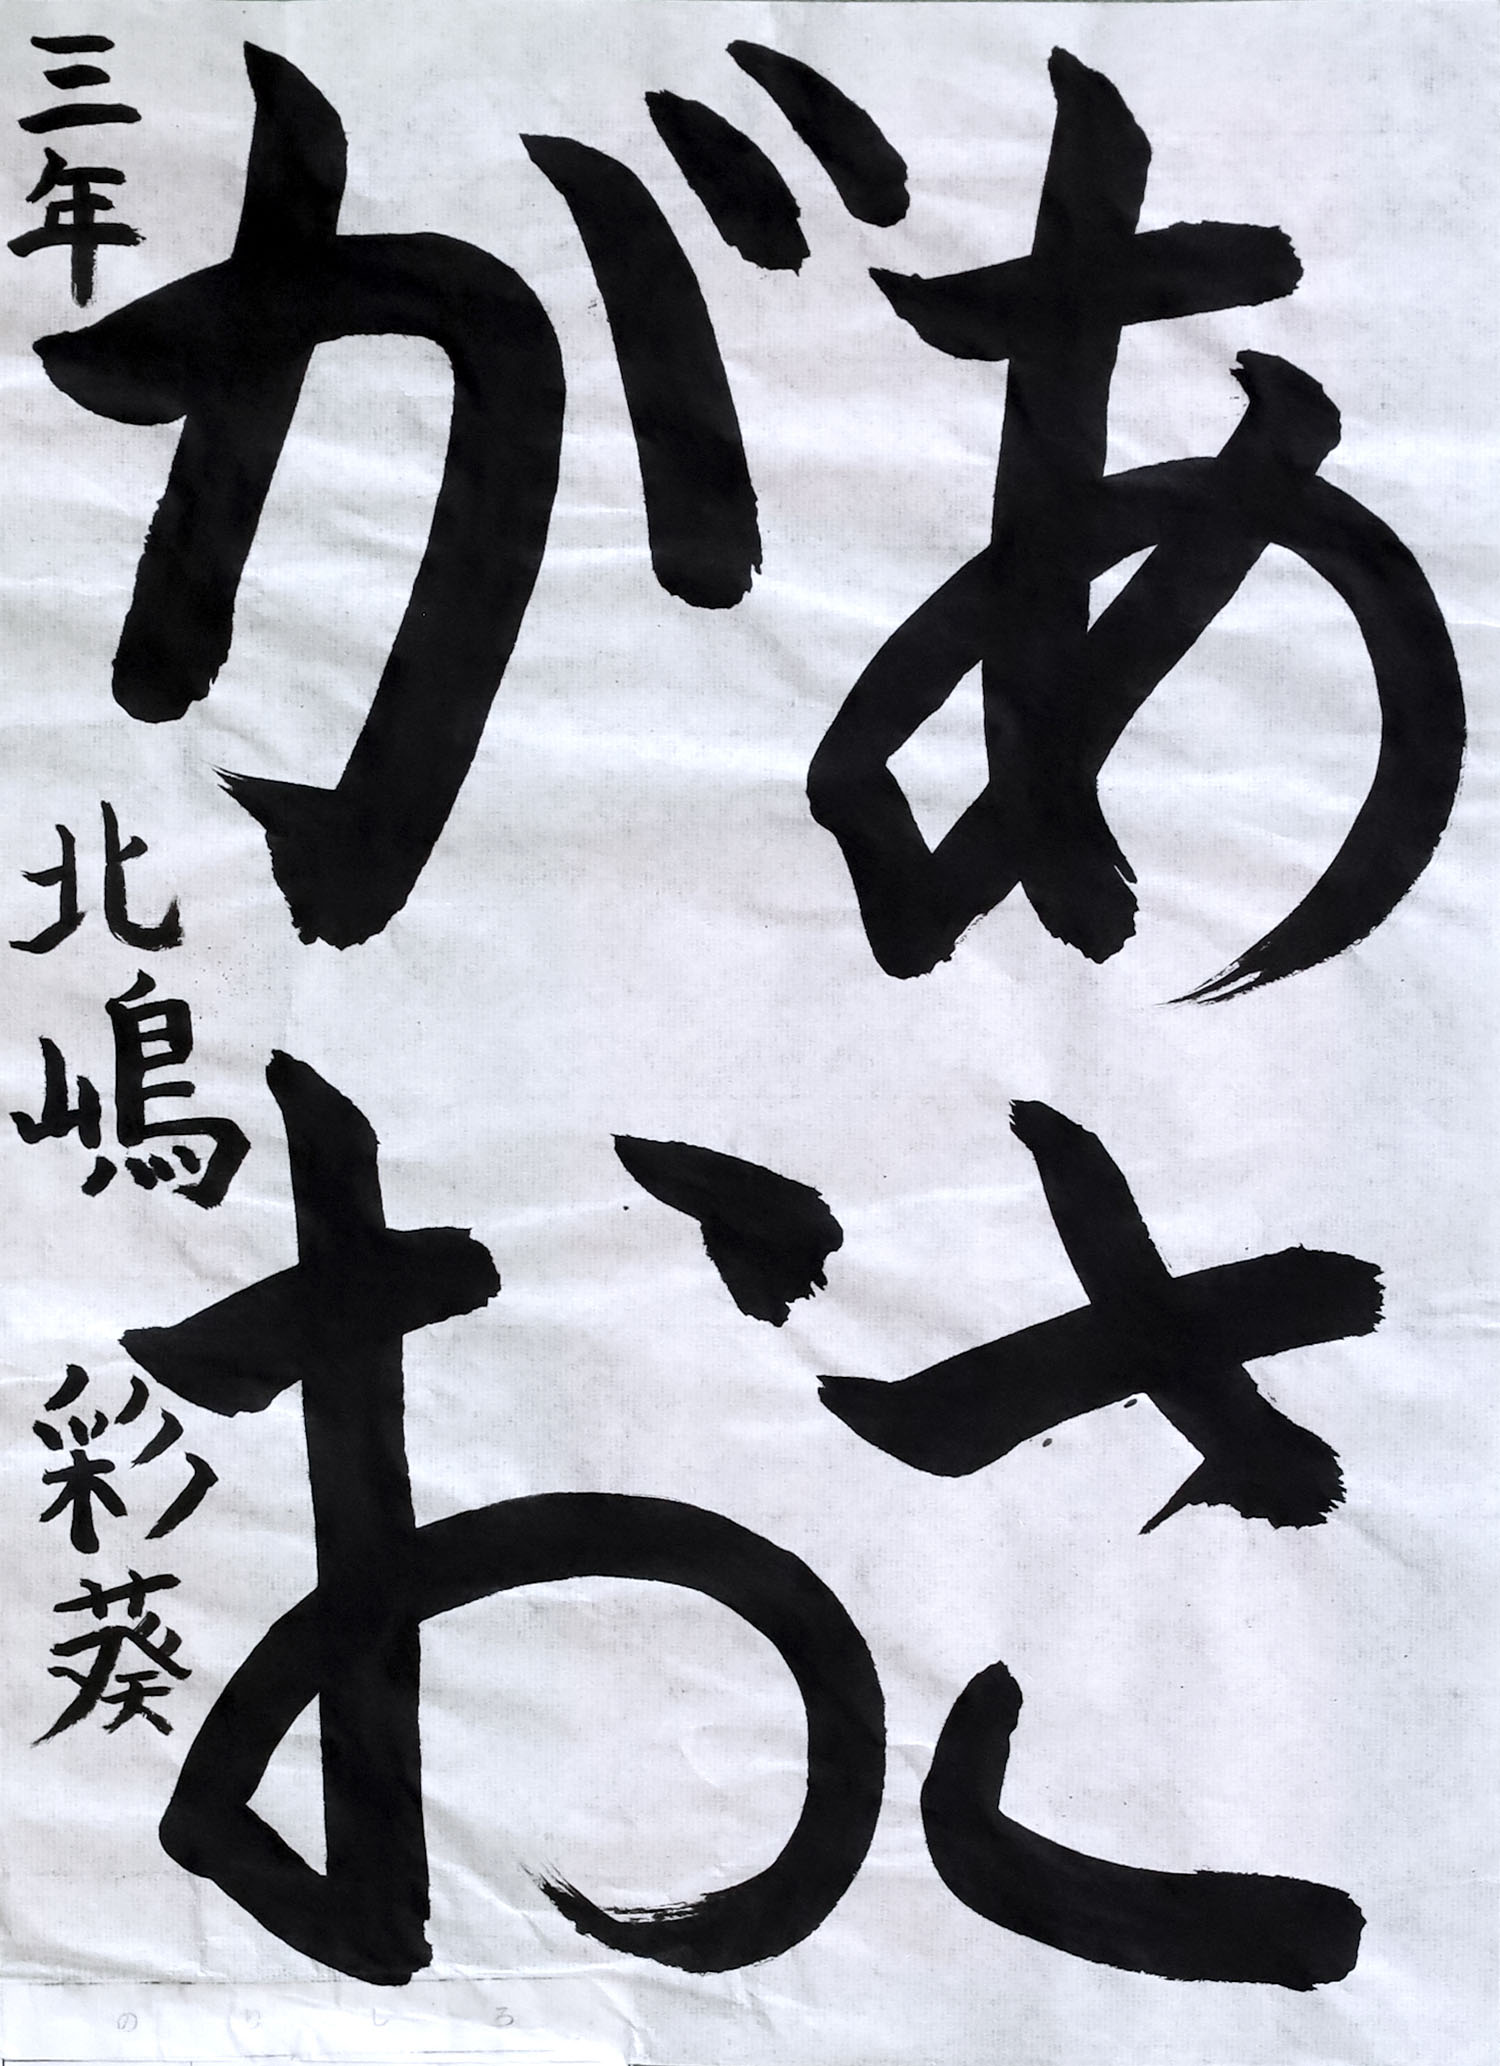 あさ
がお
三年 北嶋 彩葵
のりしろ